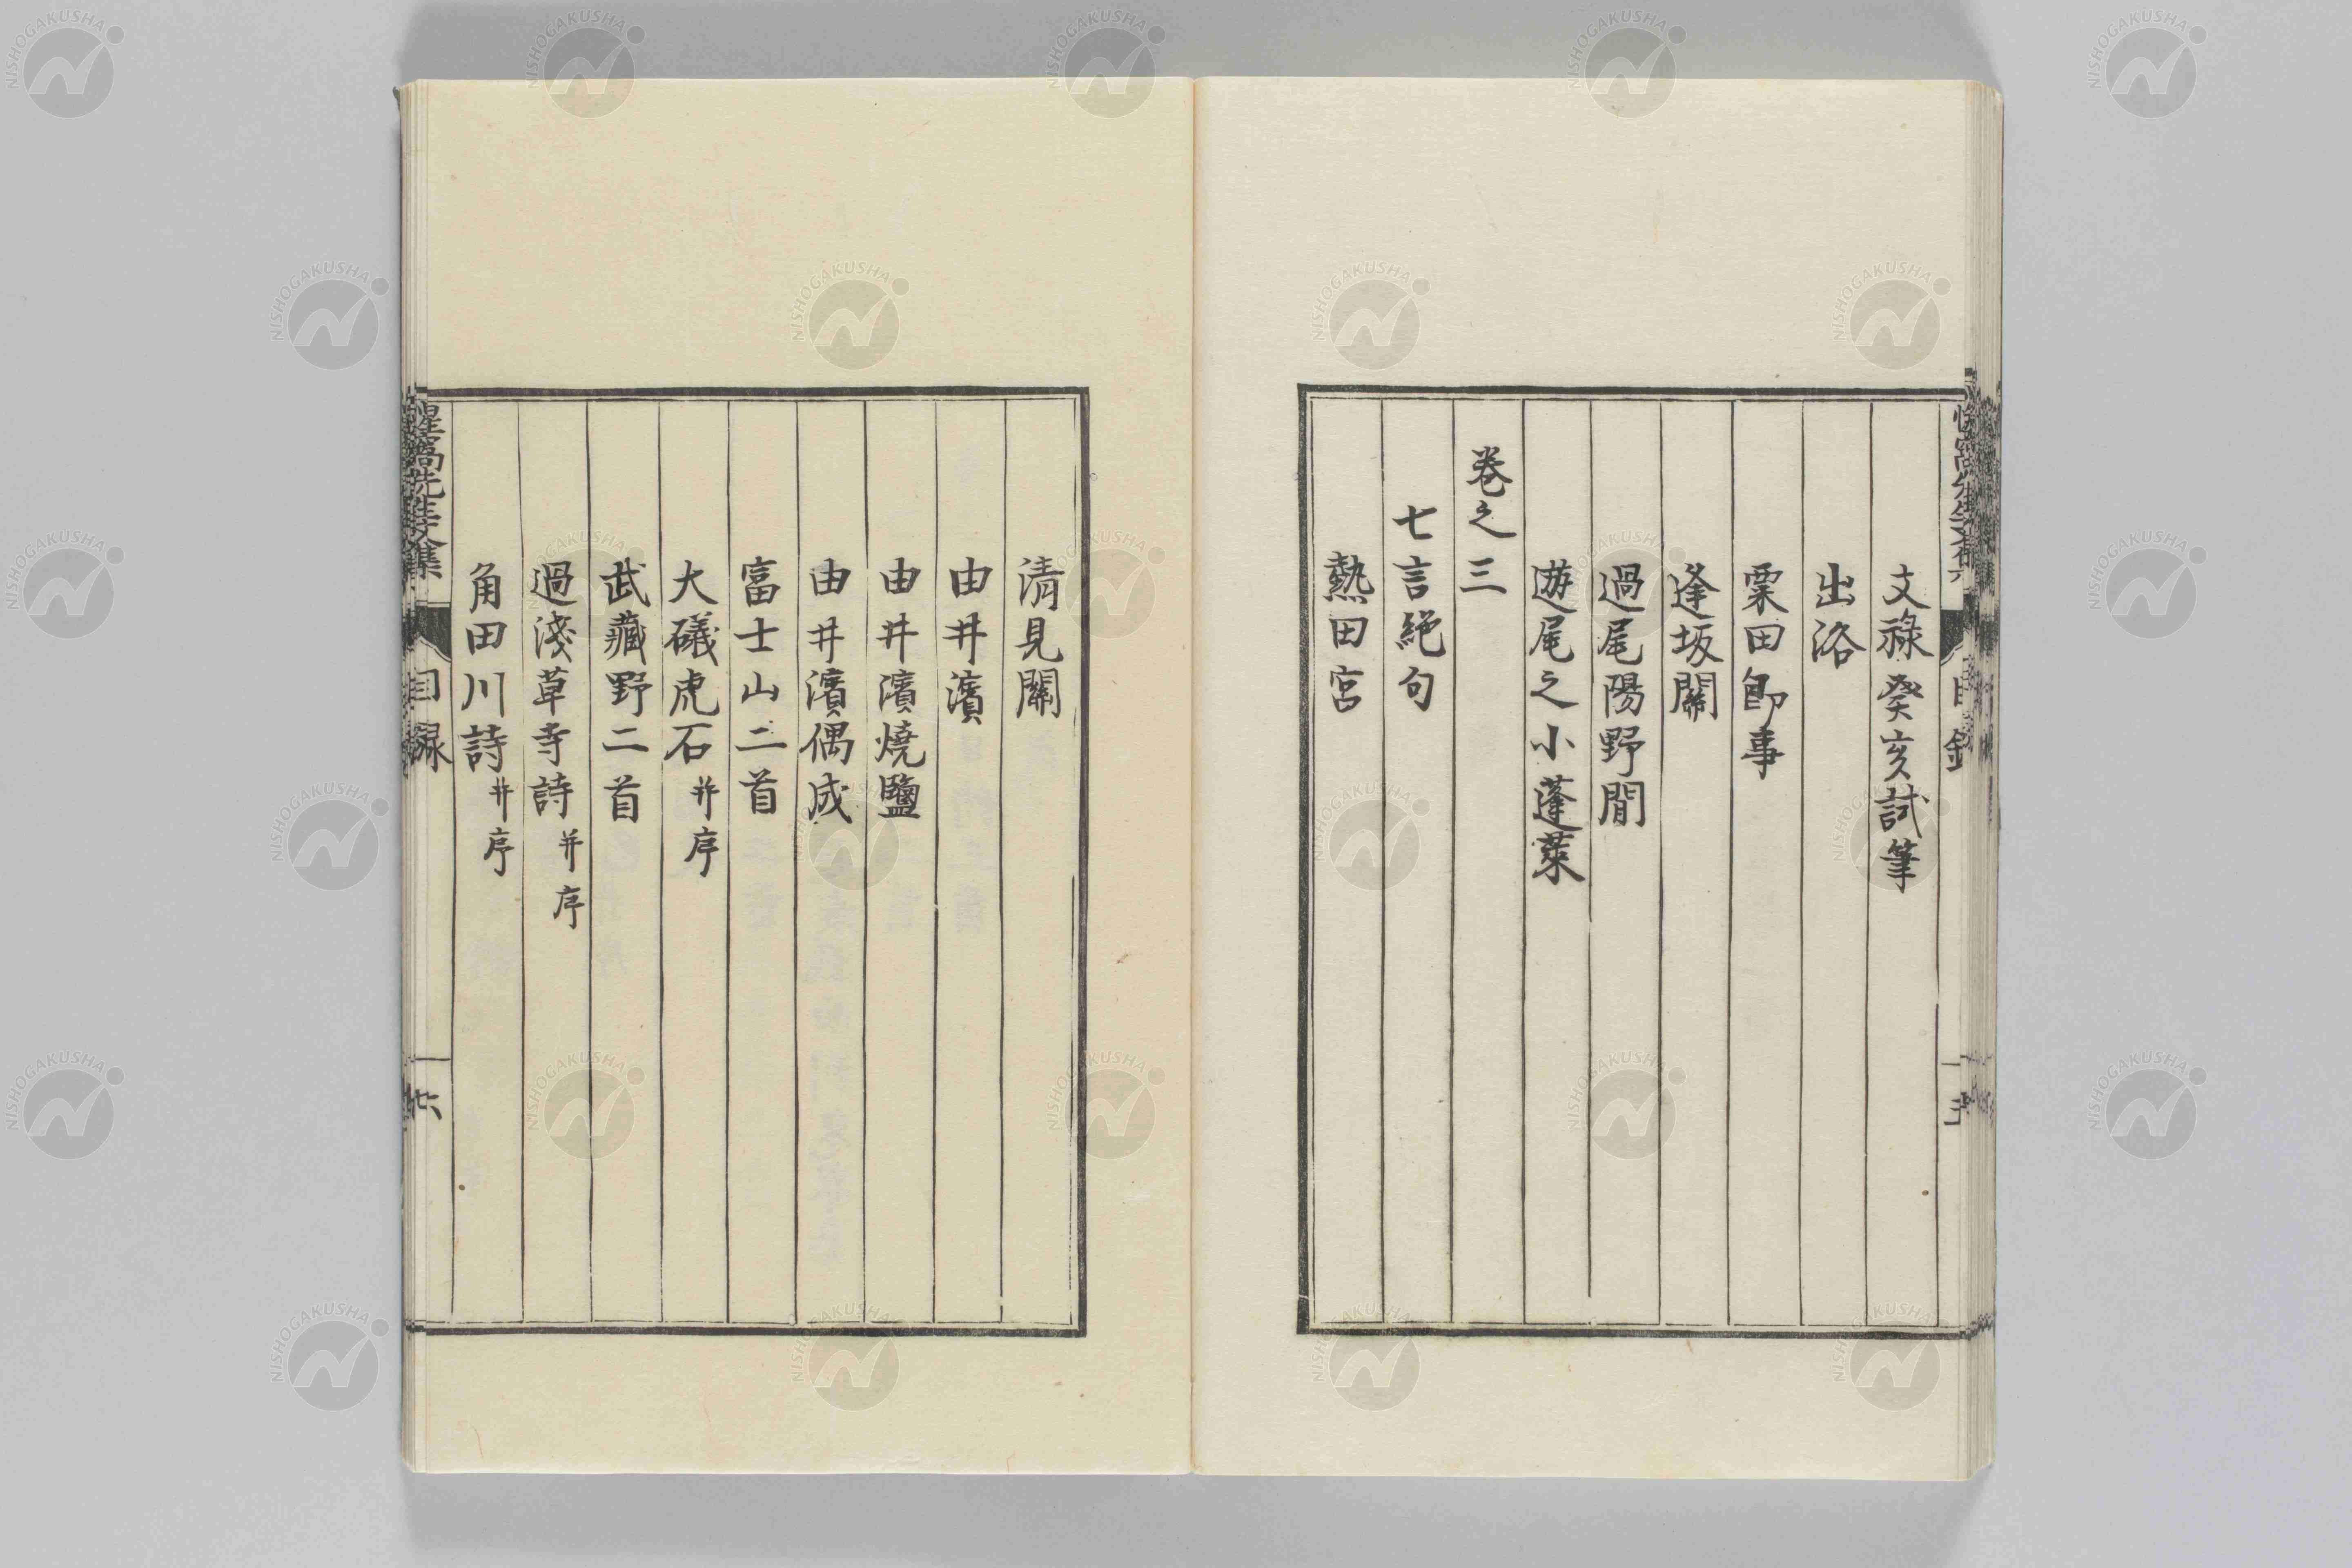 文祿癸亥試筆
出洛
粟田卽事
逢坂關
過尾陽野間
遊尾之小蓬萊
卷之三
七言絕句
熱田宮
清見關
由井濱
由井濱燒鹽
由井濱偶成
富士山二首
大礒虎石并序
武藏野二首
過淺草寺詩并序
角田川詩并序
惺窩先生文集
目錄
NISHOGAKUSHA